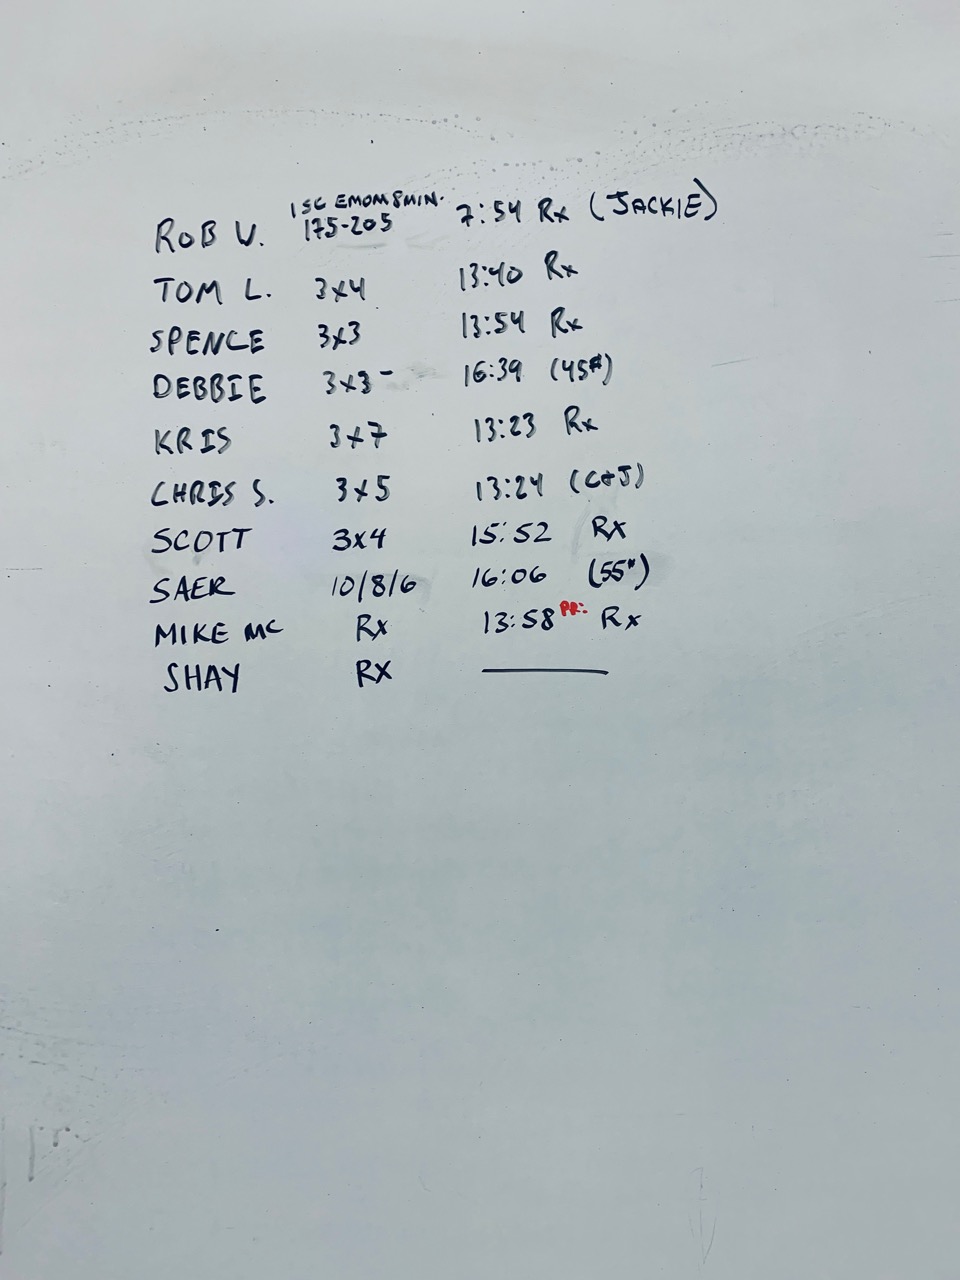 1SC EMOM 8MIN.
ROB V. 175-205 7:54 Rx (JACKIE)
TOM L. 3x4 13:40 Rx
SPENCE 3x3 13:54 Rx
DEBBIE 3x3- 16:39 (45#)
KRIS 3x7 13:23 Rx
CHRIS S. 3x5 13:24 (C+J)
SCOTT 3x4 15:52 RX
SAER 10/8/6 16:06 (55#)
MIKE MC Rx 13:58 PR: Rx
SHAY RX